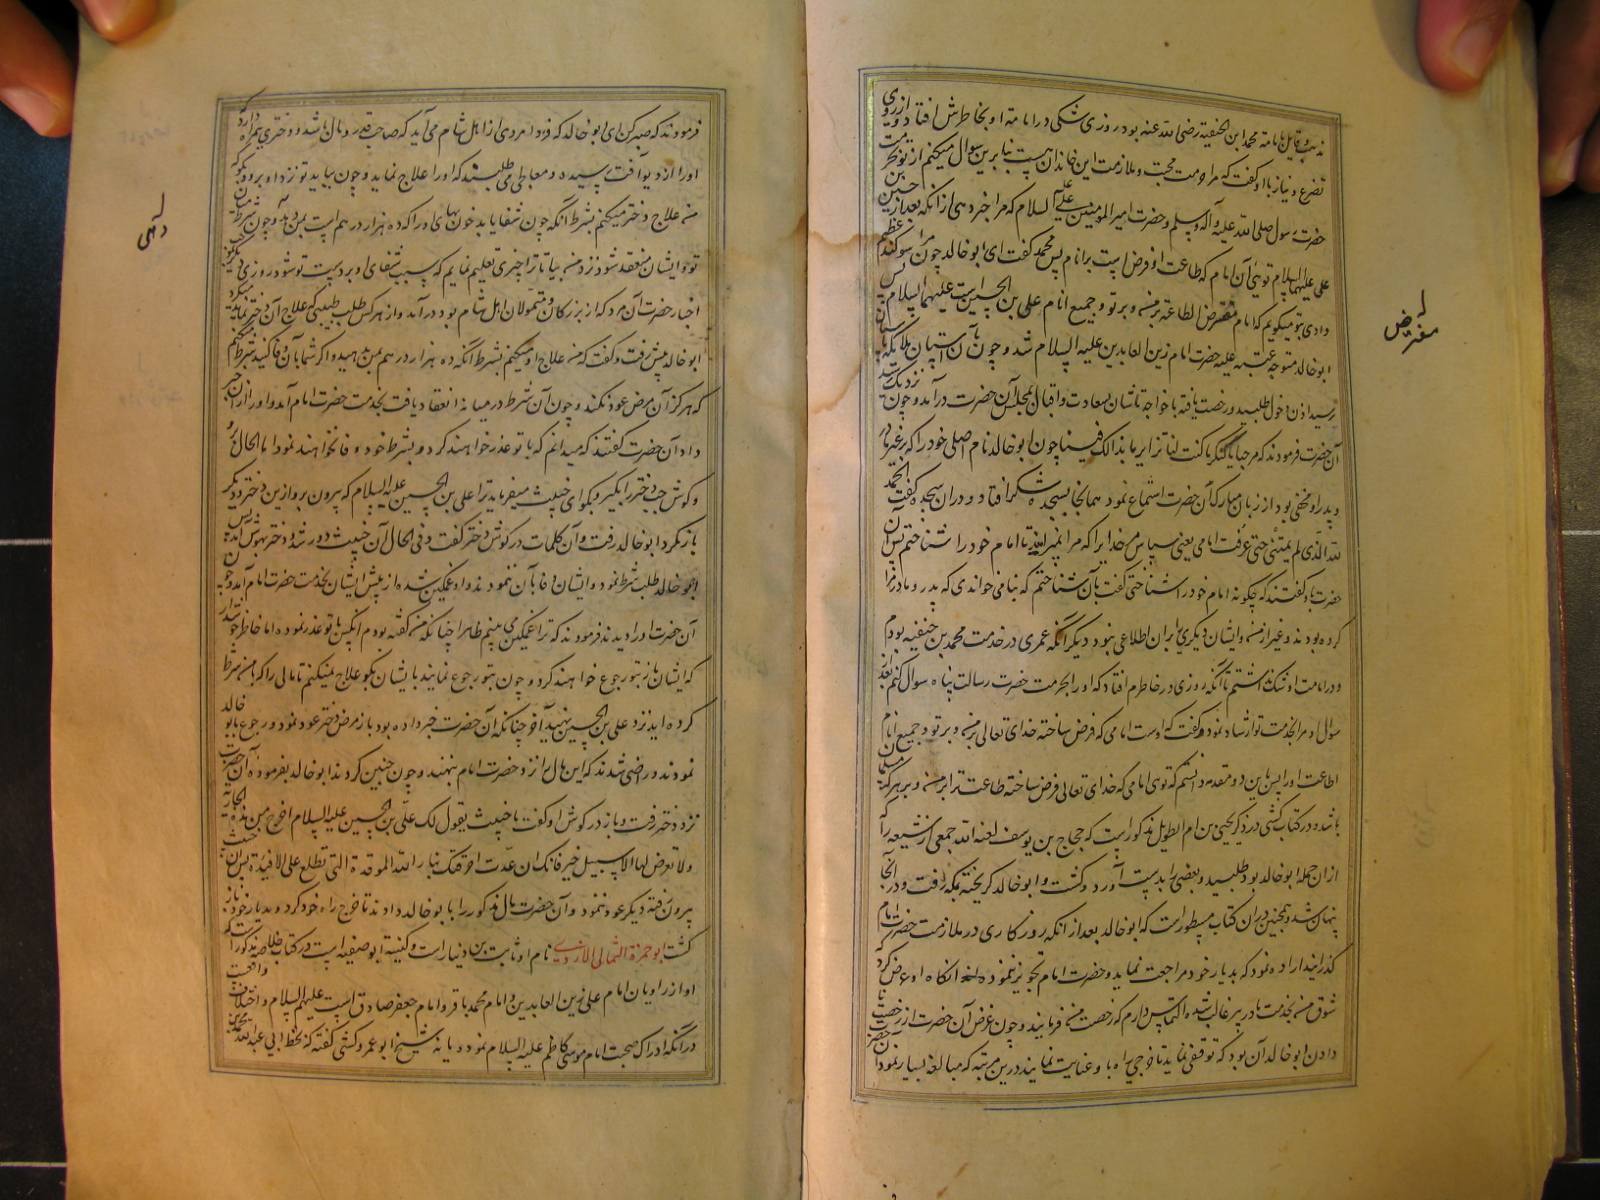 مذهب و قایل بامامة محمد ابن الحنفیة رضی الله عنه بود روزی شکی در امامة او بخاطرش افتاد و از روی
تضرع و نیاز باو گفت که مرا حرمت محبت و ملازمت این خاندان هست بنا برین سوال میکنم از تو بحرمت
حضرت رسول صلی الله علیه و آله و سلم و حضرت امیر المومنین علیه السلام که مرا خبر دهی از آنکه بعد از حسین بن
علی علیهما السلام تویی آن امام که طاعت او فرض است بر انام پس محمد گفت ای ابو خالد چون مرا سوگند عظیم
دادی بتو میگویم که امام مفترض الطاعة بر من و بر تو و جمیع انام علی بن الحسین است علیهما السلام پس
ابو خالد متوجه عتبه علیه حضرت امام زین العابدین علیه السلام شد و چون بآن آستان ملائک پاسبان
رسید اذن دخول طلبید و رخصت یافته با خواجه تاشان سعادت و اقبال بمجلس آن حضرت درآمد و چون نزدیک شد
آن حضرت فرمودند که مرحبا یا کنکر ما کنت لنا بزایر ما بدا لک فینا چون ابو خالد نام اصلی خود را که بر غیر مادر
و پدر او مخفی بود از زبان مبارک آن حضرت استماع نمود همانجا بسجده شکر افتاد و در آن سجده گفت الحمد
لله الذی لم یمتنی حتی عرفت امامی یعنی سپاس مر خدایرا که مرا نمیراند تا امام خود را شناختم پس آن
حضرت باو گفتند که چگونه امام خود را شناختی گفت بآن شناختم که بنامی خواندی که پدر و مادر مرا
کرده بودند و غیر از من و ایشان دیگری را بر آن اطلاعی نبود دیگر آنکه عمری در خدمت محمد بن حنفیه بودم
و در امامت او شک نداشتم تا آنکه روزی در خاطرم افتاد که او را بحرمت حضرت رسالت پناه سوال کنم بعد از
سوال او مرا بخدمت تو ارشاد نمود و گفت که اوست امامی که فرض ساخته خدای تعالی بر من و بر تو و جمیع انام
اطاعت او را پس باین دو مقدمه دانستم که تویی امامی که خدای تعالی فرض ساخته طاعت ترا بر من و بر هر که مسلمان
باشد و در کتاب کشی در ذکر یحیی بن ام الطویل مذکور است که حجاج بن یوسف لعنه الله جمعی از شیعه را که
از آن جمله ابو خالد بود طلبید و بعضی را بدست آورد و کشت و ابو خالد گریخته بمکه رفت و در آنجا
پنهان شد و همچنین در آن کتاب مسطور است که ابو خالد بعد از آنکه روزگاری در ملازمت حضرت امام
گذرانید اراده نمود که بدیار خود مراجعت نماید و حضرت امام تجویز ننمودند آنگاه او عرض کرد
شوق من بخدمت مادر پیر غالب شده التماس دارم که رخصت من فرمایند و چون غرض آن حضرت از رخصت نا
دادن ابو خالد آن بود که توقفی نماید تا خرجی راه باو عنایت نمایند درین مرتبه که مبالغه بسیار نمود آن حضرت
له
مفترض
فرمودند که صبر کن ای ابو خالد که فردا مردی از اهل شام می آید که صاحب قدر و مال باشد و دختری همراه دارد که
او را از دیو آفت رسیده و معالجی می طلبند که او را علاج نماید و چون بیاید تو نزد او برو و بگو که
من علاج دختر میکنم بشرط آنکه چون شفا یابد خون بهای او را که ده هزار درهم است بمن دهید و چون شرط میان
تو و ایشان منعقد شود نزد من بیا تا ترا چیزی تعلیم نمایم که سبب شفای او بر دست تو شود روزی دیگر
اخبار حضرت آن مرد که از بزرگان و متمولان اهل شام بود درآمد و از هر کس طلب طبیبی که علاج آن دختر نماید میکرد
ابو خالد پیش رفت و گفت که من علاج او میکنم بشرط آنکه ده هزار درهم بمن بدهید و اگر شما بآن وفا کنید شرط میکنم
که هرگز آن مرض عود نکند و چون آن شرط در میانه انعقاد یافت بخدمت حضرت امام آمد و او را از آن خبر
داد آن حضرت گفتند که میدانم که با تو عذر خواهند کرد و بشرط خود وفا نخواهند نمود اما الحال برو
و گوش چپ دختر را بگیر و بگو ای خبیث میفرماید ترا علی بن الحسین علیه السلام که بیرون برو ازین دختر و دیگر
باز نگرد ابو خالد رفت و آن کلمات در گوش دختر گفت و فی الحال آن خبیث دور شد و دختر بهوش آمد پس
ابو خالد طلب شرط نمود و ایشان وفا بآن ننمودند و او غمگین شده از پیش ایشان بخدمت حضرت امام آمد و چون
آن حضرت او را دیدند فرمودند که ترا غمگین می بینم ظاهرا چنانکه من گفته بودم آنکس با تو عذر نموده اما خاطر خوش دار
که ایشان باز بتو رجوع خواهند کرد و چون بتو رجوع نمایند با ایشان بگو علاج نمیکنم تا مالی را که با من شرط
کرده اید نزد علی بن الحسین بنهید آخر چنانکه آن حضرت خبر داده بود باز مرض دختر عود نمود و رجوع بابو خالد
نمودند و راضی شدند که این مال را نزد حضرت امام بنهند و چون چنین کردند ابو خالد بفرموده آن حضرت
نزد دختر رفت و باز در گوش او گفت یا خبیث یقول لک علی بن الحسین علیه السلام اخرج من هذه الجاریة
و لا تعرض لها الا بسبیل خیر فانک ان عدت احرقتک بنار الله الموقدة التی تطلع علی الافئدة پس آن خبیث
بیرون رفته دیگر عود ننمود و آن حضرت مال مذکور را بابو خالد دادند تا خرج راه خود کرد و بدیار خود باز
گشت ابو حمزة الثمالی الازدی نام او ثابت بن دینار است و کنیة ابو صفیه است در کتاب خلاصه مذکور است که
او از راویان امام علی زین العابدین و امام محمد باقر و امام جعفر صادق است علیهم السلام و اختلاف واقعست
در آنکه ادراک صحبت امام موسی کاظم علیه السلام نمود و یا نه شیخ ابو عمرو کشی گفته که بخط ابی عبد الله محمد بن
دهی